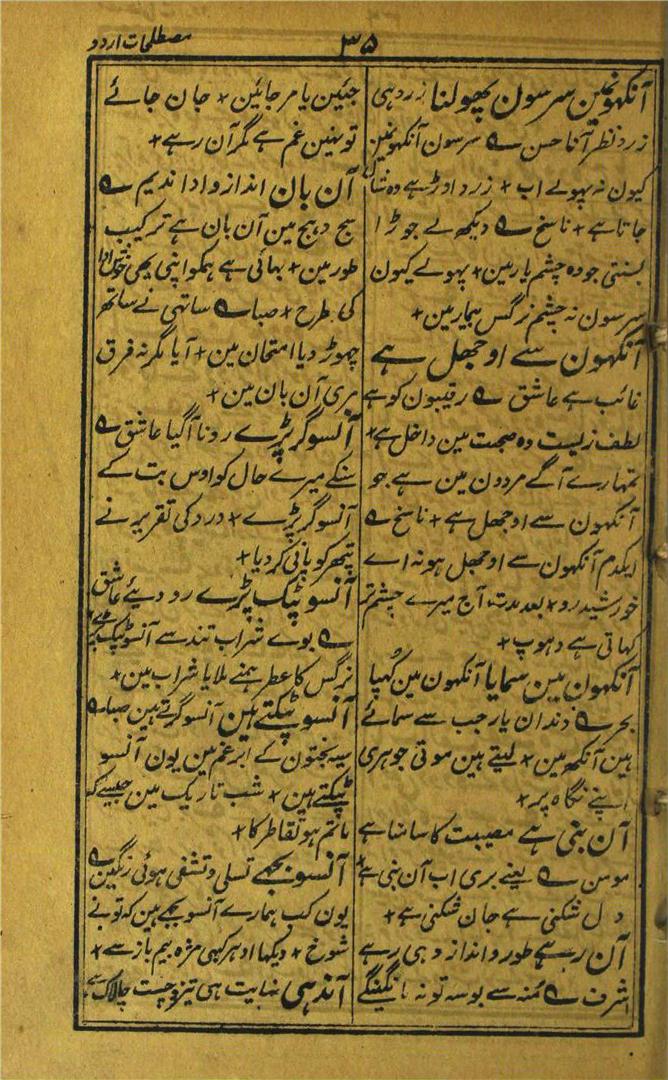 مصطلحات اردو
۳۵
آنکهونمین سرسون پھولنا زردہی
زرد نظر آنا حسن ؎ سرسون آنکهونمین
کیون نہ پہولے اب + زرد اوڑہے وہ شال
جاتا ہے + ناسخ ؎ دیکھ لے جوڑا
بسنتی جو وہ چشم یار مین + پہولے کیون
سرسون نہ چشم نرگس بیمار مین +
آنکهون سے اوجھل ہے
غائب ہے عاشق ؎ رقیبون کو ہے
لطف زیست وہ صحبت مین داخل ہے +
تمہارے آگے مردون مین ہے جو
آنکهون سے اوجھل ہے + ناسخ ؎
ایکدم آنکهون سے اوجھل ہو نہ اے
خورشید رو + بعد مدت آج میرے چشم تر
کہاتی ہے دہوپ +
آنکهون مین سمایا آنکهون مین کُہپا
بحر ؎ دندان یار جب سے سمائے
ہین آنکھ مین + لیتے ہین موتی جوہری
اپنے نگاہ پہ +
آن بنی ہے مصیبت کا سامنا ہے
مومن ؎ یعنے بری اب آن بنی ہے
دل شکنی ہے جان شکنی ہے +
آن رہے طور و انداز وہی رہے
شرف ؎ مُنہ سے بوسہ تو نہ مانگینگے
جیئین یا مر جائین + جان جائے
تو نہین غم ہے مگر آن رہے +
آن بان انداز و ادا ندیم ؎
سج دہج مین آن بان ہے ترکیب
طور مین + بہائی ہے ہمکو اپنی بھی خوش ادا
کی طرح + صبا ؎ ساتہی نے ساتھ
چھوڑ دیا امتحان مین + آیا مگر نہ فرق
مری آن بان مین +
آنسو گر پڑے رونا آگیا عاشق ؎
سنکے میرے حال کو اوس بت کے
آنسو گر پڑے + درد کی تقریر نے
پتھر کو پانی کر دیا +
آنسو ٹپک پڑے رو دیئے عاشق
؎ بوے شراب تند سے آنسو ٹپک پڑے
نرگس کا عطر ہمنے ملایا شراب مین +
آنسو ٹپکتے ہین آنسو گرتے ہین صبا ؎
سیہ بختون کے ابر غم مین یون آنسو
ٹپکتے ہین + شب تاریک مین جیسے کہ
ماتم ہو تقاطر کا +
آنسو بجھے تسلی و تشفی ہوئی رنگین ؎
یون کب ہمارے آنسو بجھے ہین کہ تو نے
شوخ + دیکہا اودہر کبہی مژہ نیم باز سے +
آندہی نہایت ہی تیز و چست چالاک ہے